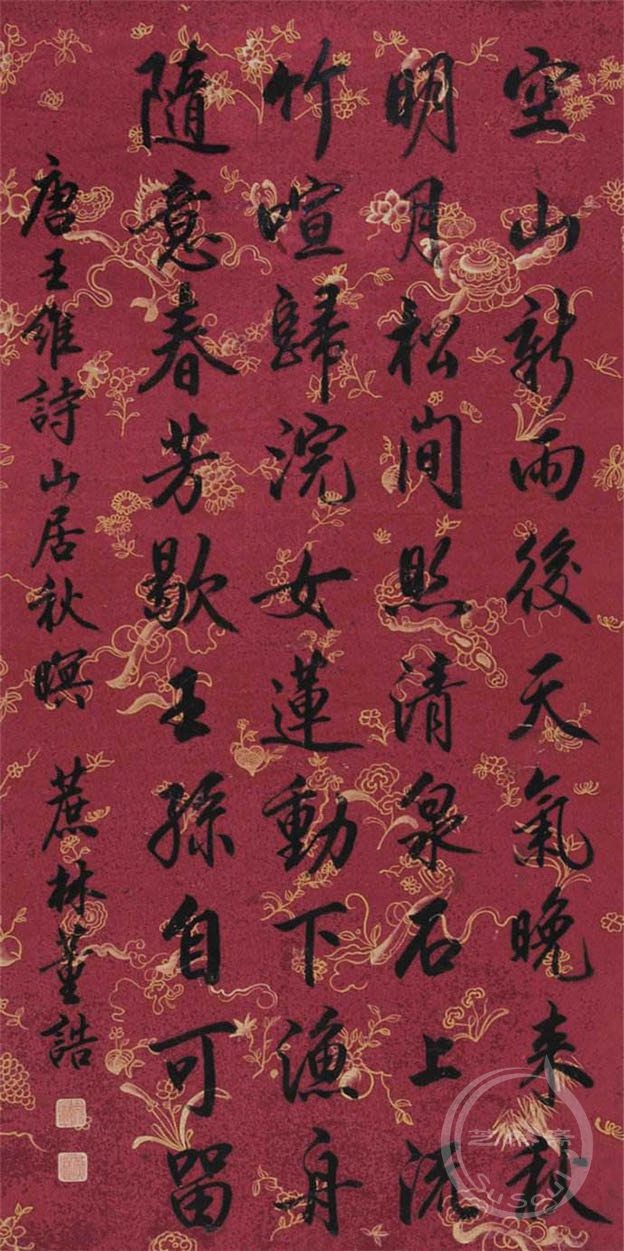 空山新雨後天氣晚來秋
明月松間照清泉石上流
竹喧歸浣女蓮動下漁舟
隨意春芳歇王孫自可留
唐王維詩山居秋暝 蔗林董誥